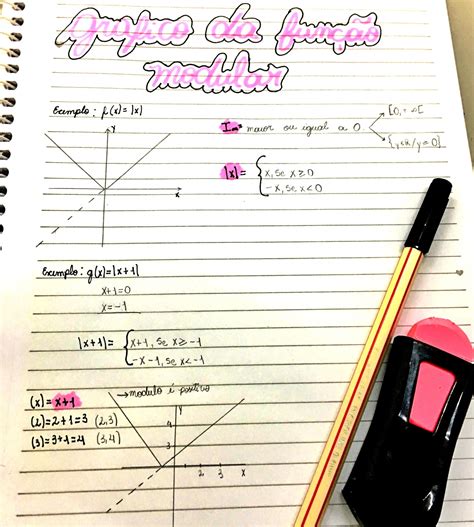 gráfico da função
modular
Exemplo: f(x)=|x|
Im= maior ou igual a 0
[0,+∞[
{y∈R/y≥0}
y
x
|x|= { x, se x≥0
-x, se x<0
Exemplo: g(x)=|x+1|
x+1=0
x=-1
|x+1|= { x+1, se x≥-1
-x-1, se x<-1
→modulo é positivo
(x)= x+1
(2)=2+1=3 (2,3)
(3)=3+1=4 (3,4)
y
4
3
2 3 x